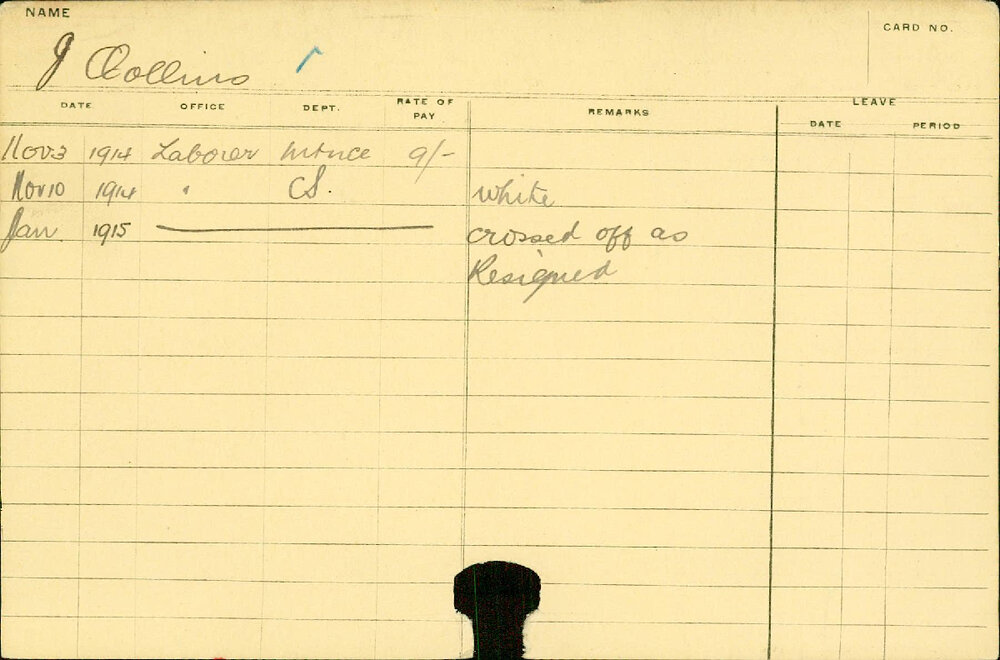 NAME
CARD NO.
J Collins
DATE OFFICE DEPT. RATE OF PAY REMARKS LEAVE DATE PERIOD
Nov 3 1914 Laborer Mtnce 9/-
Nov 10 1914 " CS. White
Jan 1915 crossed off as
Resigned